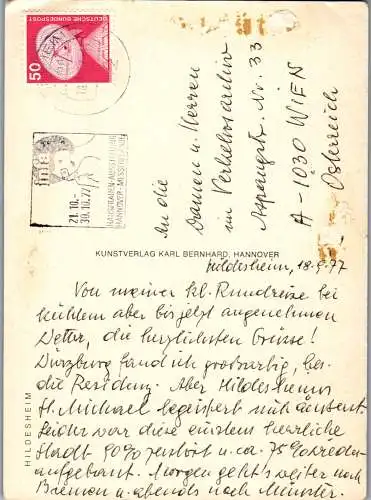 DEUTSCHE BUNDESPOST
50
infa
21.10.-
30.10.77
HAUSFRAUEN-AUSSTELLUNG
HANNOVER-MESSEGELÄNDE
An die
Damen u. Herren
im Verkehrsarchiv
Aspangstr. Nr. 33
A-1030 WIEN
Österreich
KUNSTVERLAG KARL BERNHARD, HANNOVER
HILDESHEIM
Hildesheim, 18.9.77
Von meiner kl. Rundreise bei
kühlem aber bis jetzt angenehmen
Wetter, die herzlichsten Grüsse!
Würzburg fand ich großartig, bes.
die Residenz. Aber Hildesheims
St. Michael begeistert mich äusserst.
Leider war diese einstem herrliche
Stadt 90% zerstört u. ca. 75% wieder
aufgebaut. Morgen geht's weiter nach
Bremen u. abends nach Münster.